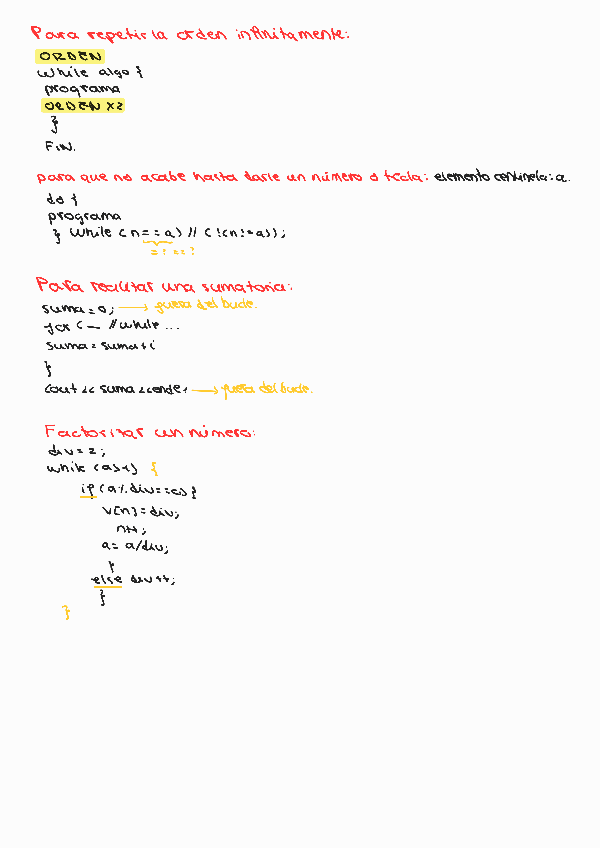 Para repetir la orden infinitamente:
ORDEN
while algo {
programa
ORDEN x2
}
FIN.
para que no acabe hasta darle un número o tecla: elemento centinela: a.
do {
programa
} while (n==a) // (!(n!=a));
=! ==!
Para realizar una sumatoria:
suma=0; → fuera del bucle.
for (— //while ...
suma = suma + i
}
cout << suma << endl → fuera del bucle.
Factorizar un número:
div=2;
while (a>1) {
if (a%div==0) {
v[n]=div;
n++;
a= a/div;
}
else div++;
}
}